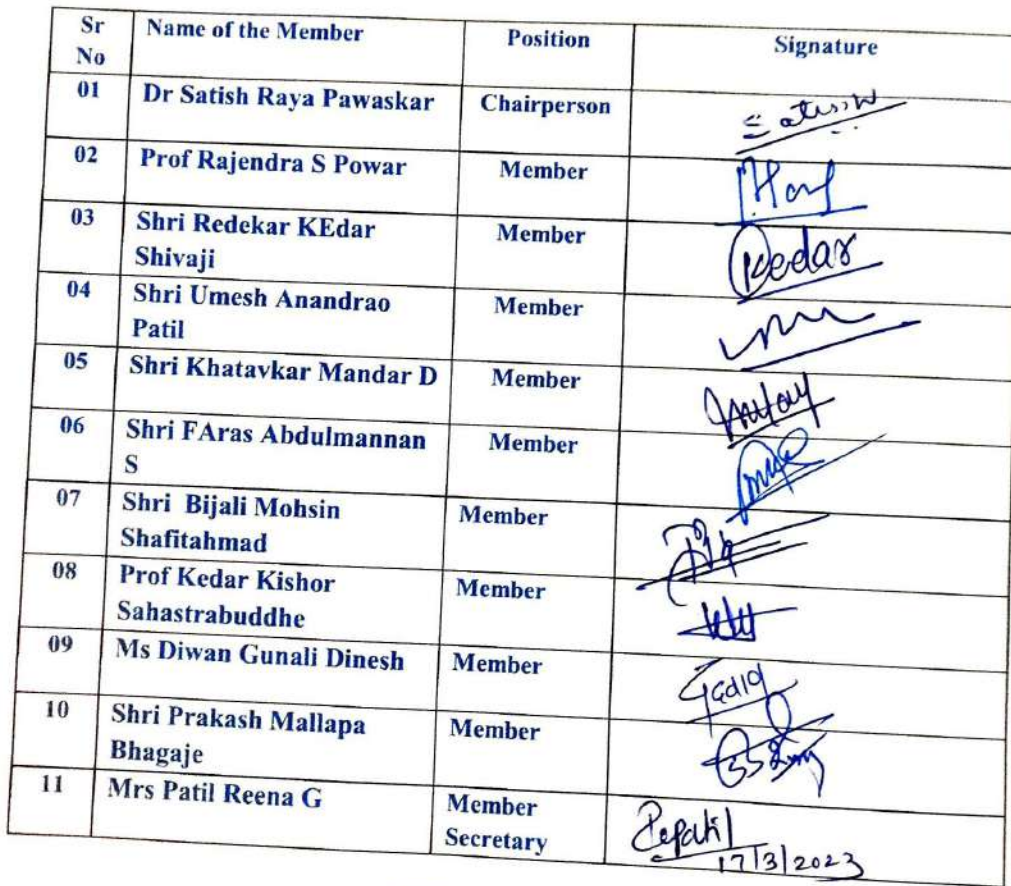 Sr No Name of the Member Position Signature
01 Dr Satish Raya Pawaskar Chairperson
02 Prof Rajendra S Powar Member
03 Shri Redekar KEdar Member Kedar
Shivaji
04 Shri Umesh Anandrao Member
Patil
05 Shri Khatavkar Mandar D Member
06 Shri FAras Abdulmannan Member
S
07 Shri Bijali Mohsin Member
Shafitahmad
08 Prof Kedar Kishor Member
Sahastrabuddhe
09 Ms Diwan Gunali Dinesh Member
10 Shri Prakash Mallapa Member
Bhagaje
11 Mrs Patil Reena G Member
Secretary
17/3/2023